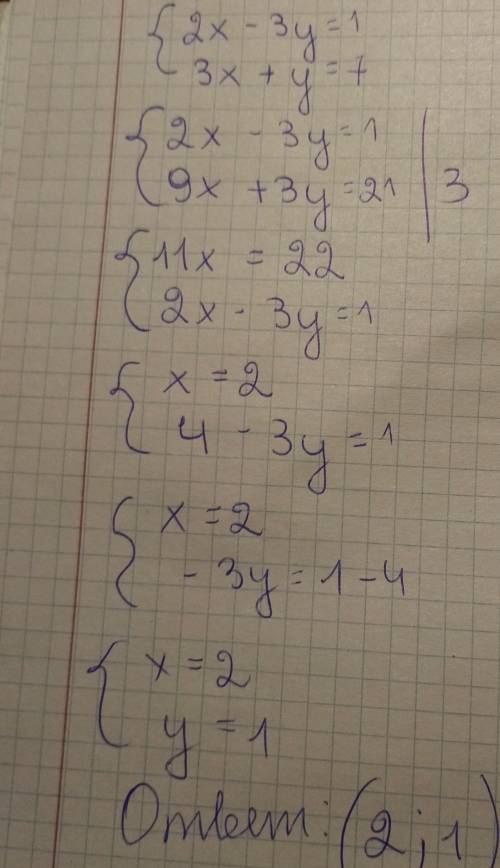 { 2x - 3y = 1
3x + y = 7
{ 2x - 3y = 1
9x + 3y = 21 | 3
{ 11x = 22
2x - 3y = 1
{ x = 2
4 - 3y = 1
{ x = 2
- 3y = 1 - 4
{ x = 2
y = 1
Ответ: (2; 1)